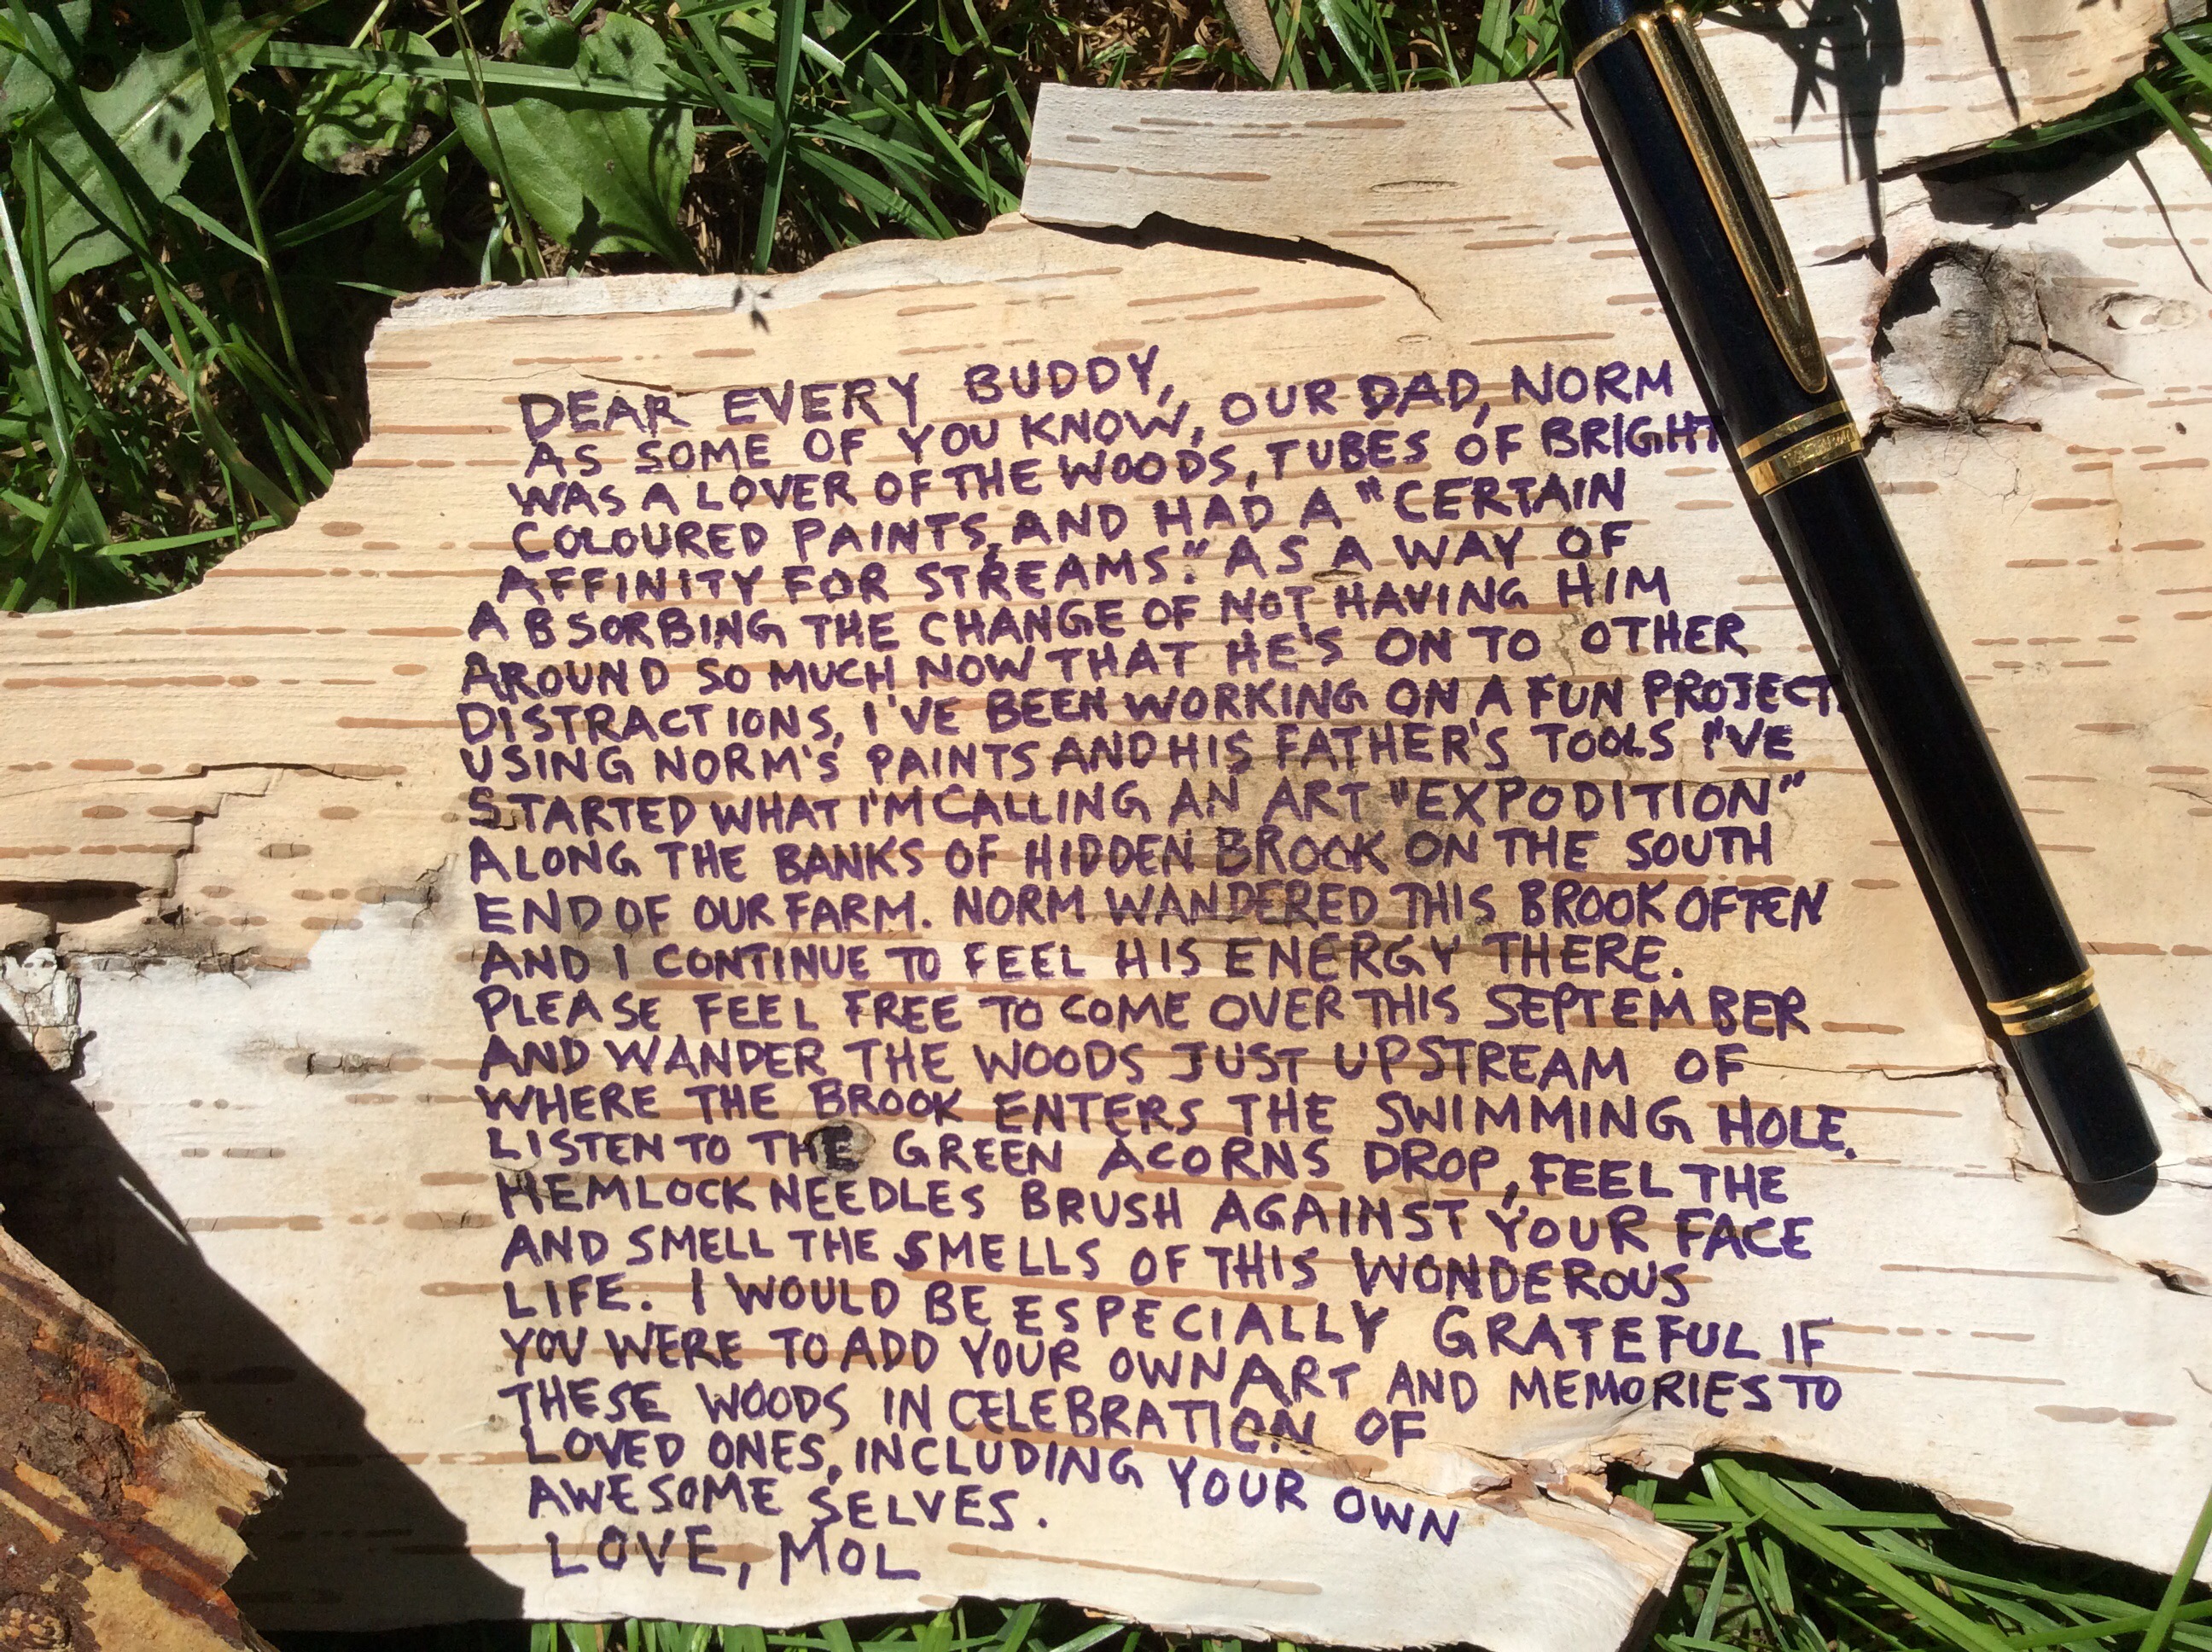 DEAR EVERY BUDDY,
AS SOME OF YOU KNOW, OUR DAD, NORM
WAS A LOVER OF THE WOODS, TUBES OF BRIGHT
COLOURED PAINTS, AND HAD A "CERTAIN
AFFINITY FOR STREAMS." AS A WAY OF
ABSORBING THE CHANGE OF NOT HAVING HIM
AROUND SO MUCH NOW THAT HE'S ON TO OTHER
DISTRACTIONS, I'VE BEEN WORKING ON A FUN PROJECT.
USING NORM'S PAINTS AND HIS FATHER'S TOOLS I'VE
STARTED WHAT I'M CALLING AN ART "EXPODITION"
ALONG THE BANKS OF HIDDEN BROOK ON THE SOUTH
END OF OUR FARM. NORM WANDERED THIS BROOK OFTEN
AND I CONTINUE TO FEEL HIS ENERGY THERE.
PLEASE FEEL FREE TO COME OVER THIS SEPTEMBER
AND WANDER THE WOODS JUST UPSTREAM OF
WHERE THE BROOK ENTERS THE SWIMMING HOLE.
LISTEN TO THE GREEN ACORNS DROP, FEEL THE
HEMLOCK NEEDLES BRUSH AGAINST YOUR FACE
AND SMELL THE SMELLS OF THIS WONDEROUS
LIFE. I WOULD BE ESPECIALLY GRATEFUL IF
YOU WERE TO ADD YOUR OWN ART AND MEMORIES TO
THESE WOODS IN CELEBRATION OF
LOVED ONES, INCLUDING YOUR OWN
AWESOME SELVES.
LOVE, MOL